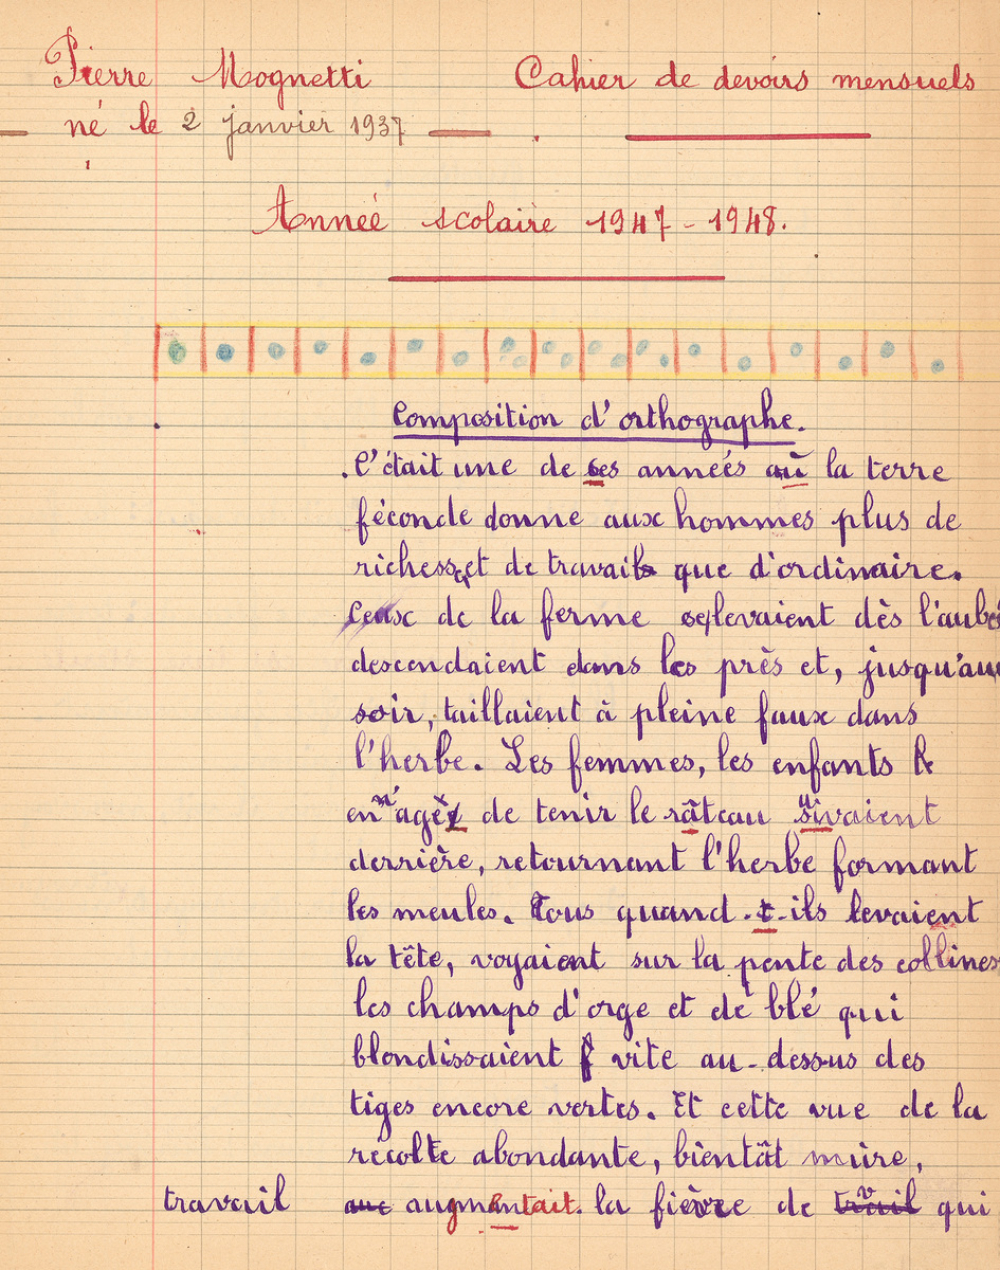 Pierre Mognetti Cahier de devoirs mensuels
né le 2 janvier 1937
Année scolaire 1947-1948.
Composition d'orthographe.
C'était une de ces années où la terre
féconde donne aux hommes plus de
richesse et de travail que d'ordinaire.
Ceux de la ferme se levaient dès l'aube
descendaient dans les près et, jusqu'au
soir, taillaient à pleine faux dans
l'herbe. Les femmes, les enfants
en âge de tenir le râteau suivaient
derrière, retournant l'herbe formant
les meules. Tous quand ils levaient
la tête, voyaient sur la pente des collines
les champs d'orge et de blé qui
blondissaient vite au-dessus des
tiges encore vertes. Et cette vue de la
récolte abondante, bientôt mûre,
travail augmentait la fièvre de travail qui